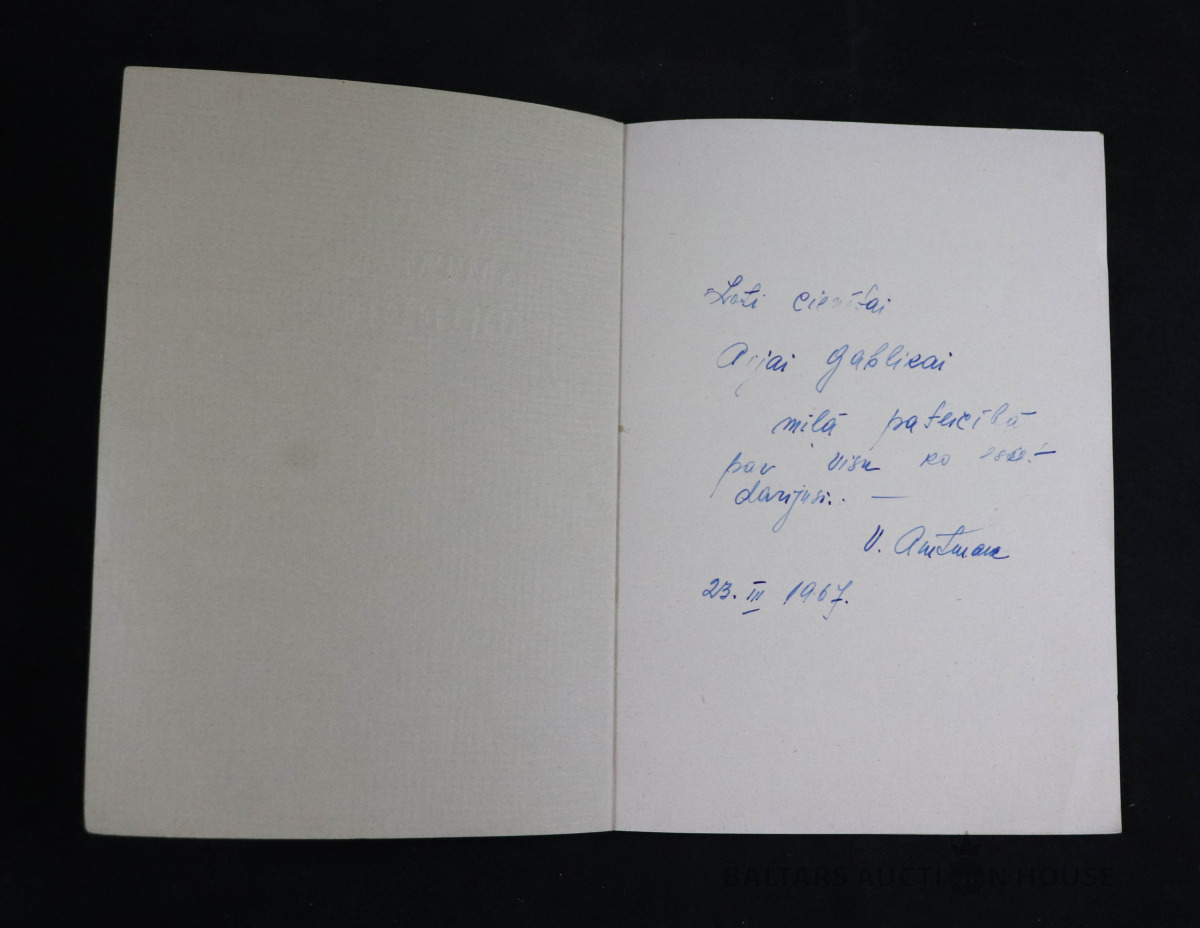 Ļoti cienītai
Ārijai Gablikai
mīļā pateicībā
par visu ko esat
darījusi. —
V. Amtman
23. III 1967.
BALTARS AUCTION HOUSE